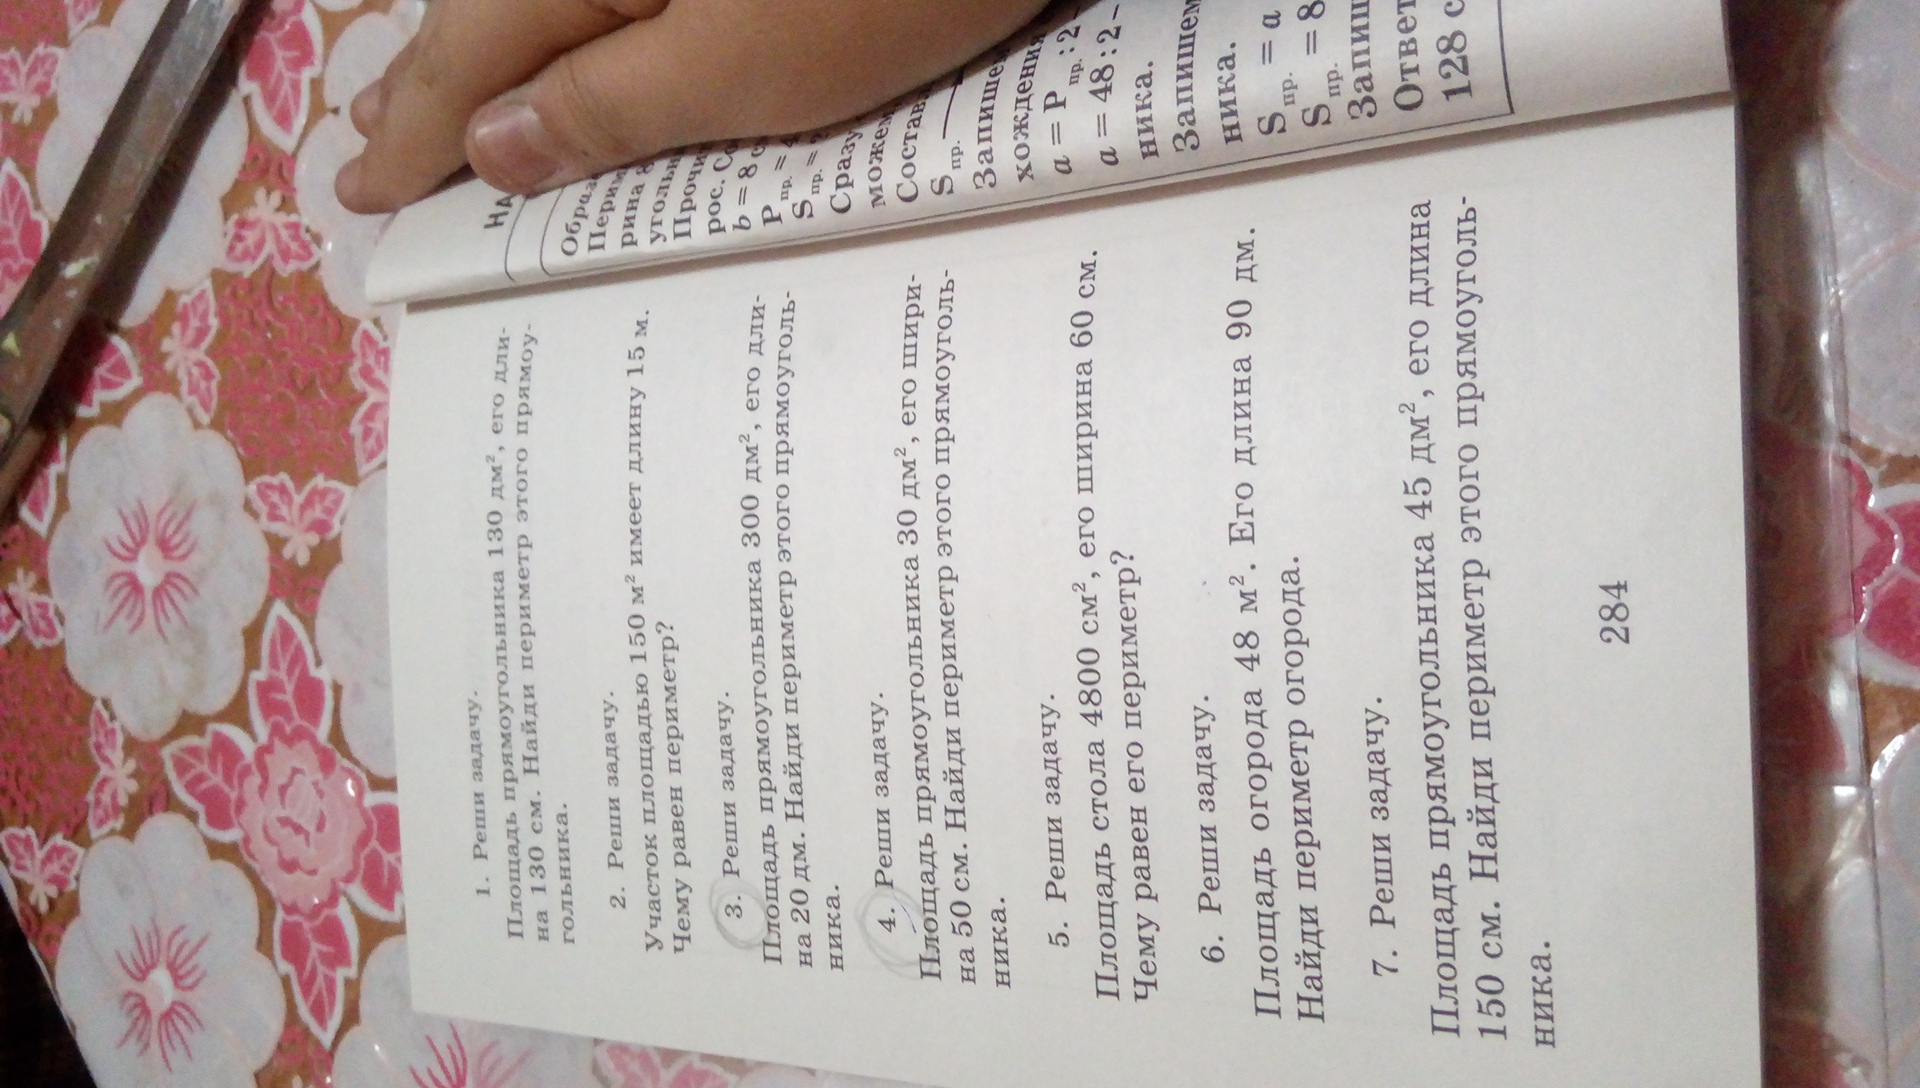 1. Реши задачу.
Площадь прямоугольника 130 дм², его дли-
на 130 см. Найди периметр этого прямоу-
гольника.
2. Реши задачу.
Участок площадью 150 м² имеет длину 15 м.
Чему равен периметр?
3. Реши задачу.
Площадь прямоугольника 300 дм², его дли-
на 20 дм. Найди периметр этого прямоуголь-
ника.
4. Реши задачу.
Площадь прямоугольника 30 дм², его шири-
на 50 см. Найди периметр этого прямоуголь-
ника.
5. Реши задачу.
Площадь стола 4800 см², его ширина 60 см.
Чему равен его периметр?
6. Реши задачу.
Площадь огорода 48 м². Его длина 90 дм.
Найди периметр огорода.
7. Реши задачу.
Площадь прямоугольника 45 дм², его длина
150 см. Найди периметр этого прямоуголь-
ника.
284
рина
рос.
b = 8
P пр. =
S пр. =
Сразу
S пр.
a = P пр. : 2 -
a = 48 : 2 -
ника.
ника.
S пр. = a
S пр. = 8
Ответ
128